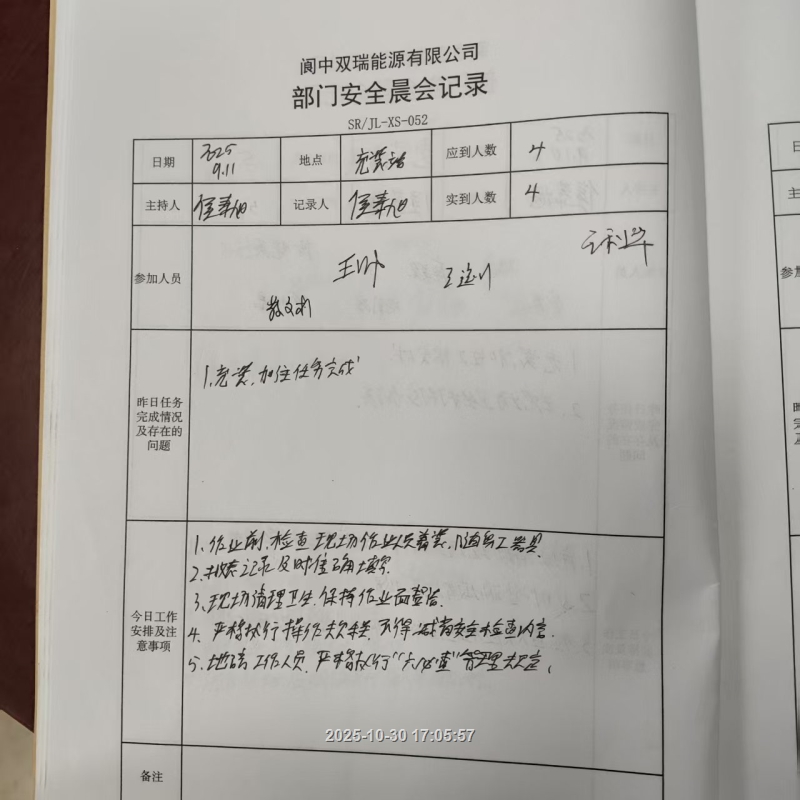 阆中双瑞能源有限公司
部门安全晨会记录
SR/JL-XS-052
日期 2025 9.11 地点 充装站 应到人数 4
主持人 记录人 实到人数 4
参加人员
昨日任务完成情况及存在的问题
1、充装、加注任务完成
今日工作安排及注意事项
1、作业前、检查现场作业人员着装、随身工器具
2、报表记录及时准确填写
3、现场清理卫生、保持作业面整洁
4、严格执行操作规程、不得减省安全检查内容
5、地磅工作人员、严格执行“六必查”管理规定、
备注
2025-10-30 17:05:57
日
主
参加
昨
完
及